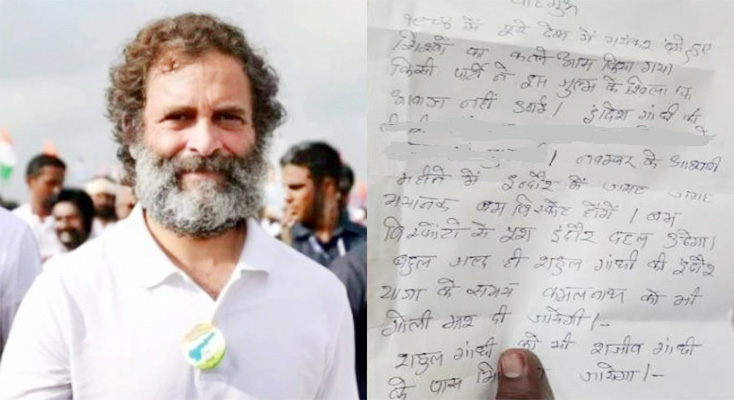 वाहेगुरू
१९८४ में पूरे देश में भयंकर दंगे हुए
सिक्खों का कत्ले आम किया गया
किसी पार्टी ने इस जुल्म के खिलाफ
आवाज नहीं उठाई। इंदिरा गांधी की
। नवम्बर के आखरी
महीने में इन्दौर में जगह जगह
भयानक बम विस्फोट होंगें। बम
विस्फोटों से पूरा इंदौर दहल उठेगा।
बहुत जल्द ही राहुल गांधी की इंदौर
यात्रा के समय कमलनाथ को भी
गोली मार दी जायेगी।-
राहुल गांधी को भी राजीव गांधी
के पास जायेगा।-